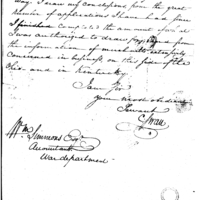 way. I draw my conclusions from the great
number of applications I have had from
completed the amount of which
I was authorised to draw for,
the information of
concerned in business on this side of the
Ohio. and in Kentucky
I am Sir
your most obedient
Servant
C Swan
Wm Simmons Esqr
Accountant
War department